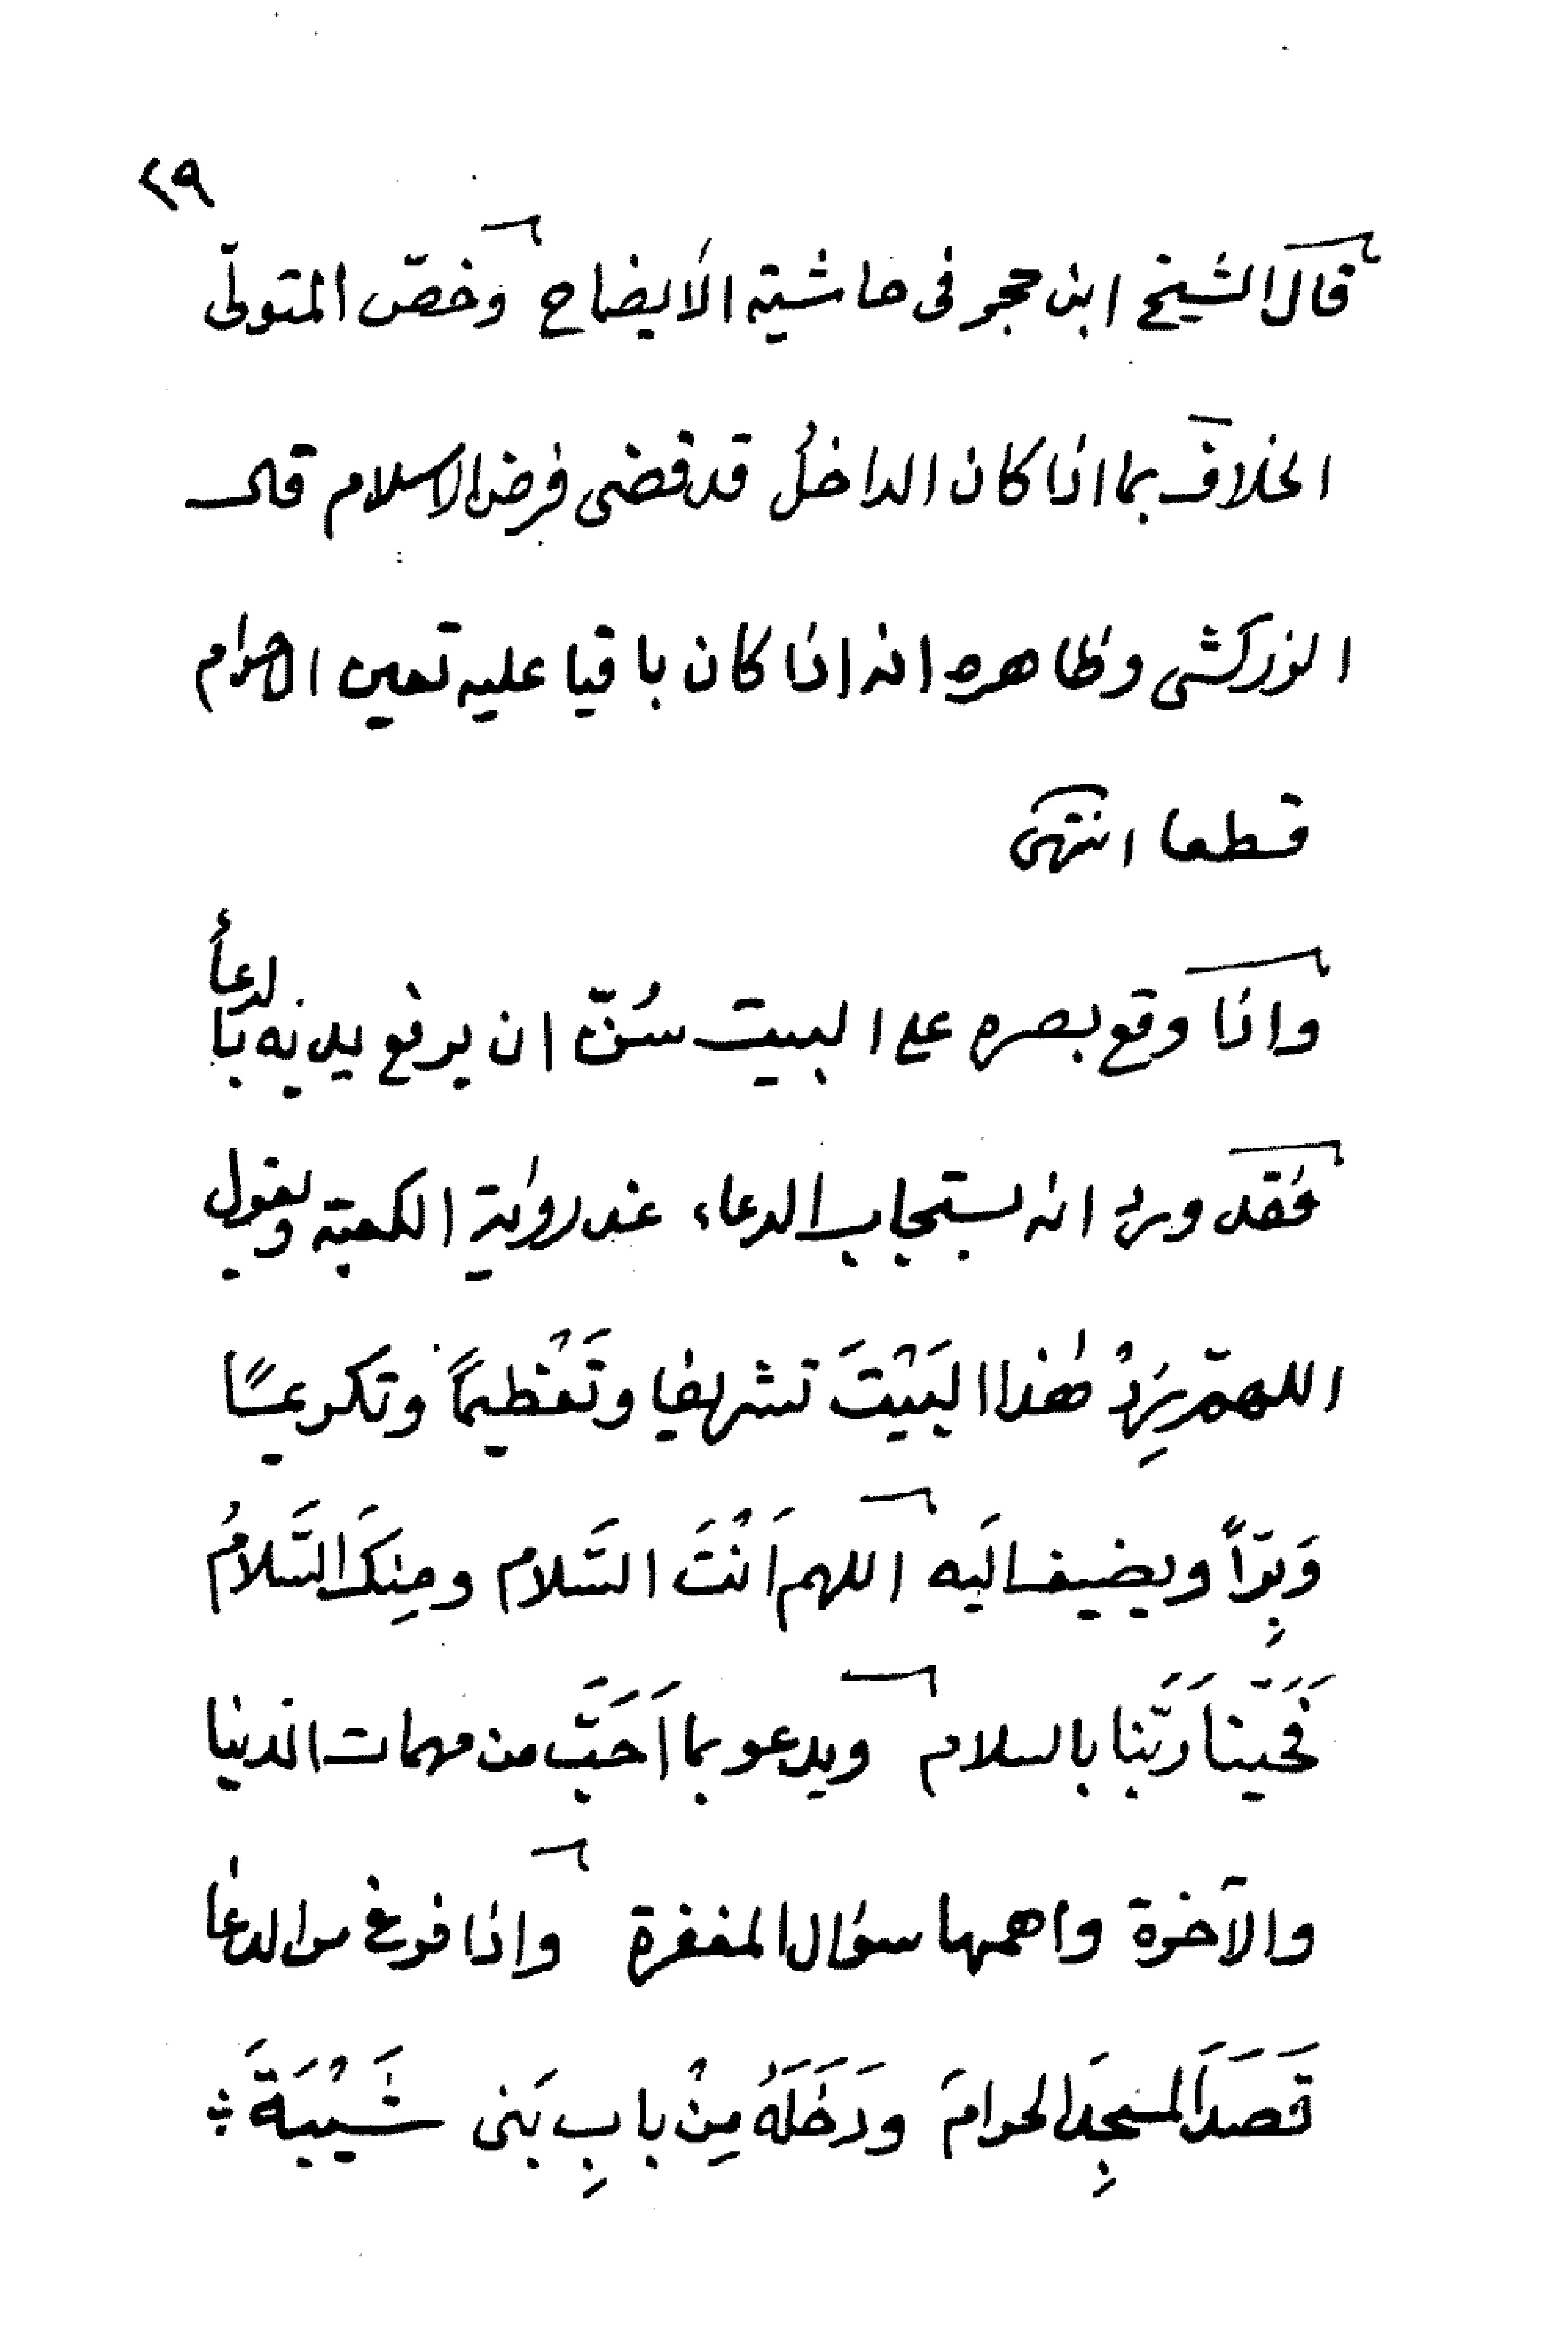 ٢٩
قال الشيخ ابن حجر فى حاشية الايضاح وخصّ المتولّى
الخلاف بما اذا كان الداخلُ قد قضى فرض الاسلام قال
الزركشى وظاهره انه اذا كان باقيا عليه تعين الاحرام
قطعا انتهى
واذا وقع بصره على البيت سُنّ ان يرفع يديه بالدعأ
فقد ورد انه يستجاب الدعاء عند رؤية الكعبة ويقول
اللهمّ زِدْ هٰذا البَيْتَ تشريفا وتَعْظيماً وتكريمًا
وَبِرّاً ويضيف اليه اللهم اَنْتَ السَّلام ومِنكَ السَّلامُ
فَحَيّنَا رَبَّنا بالسلام ويدعو بما اَحَبَّ من مهمات الدنيا
والآخرة واهمها سؤال المغفرة واذا فرغ من الدعا
قَصَدَ المَسجِدَ الحرامَ ودَخَلَهُ مِنْ بابِ بَنى شَيْبَةَ